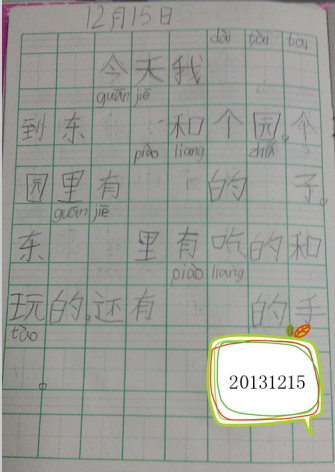 12月15日
dài
今天我
guān jiē
到东 和个园。个
piào liang
园里有 的 子。
guān jiē
东 里有吃的和
piào liang
玩的。还有 的手
tào
。
20131215